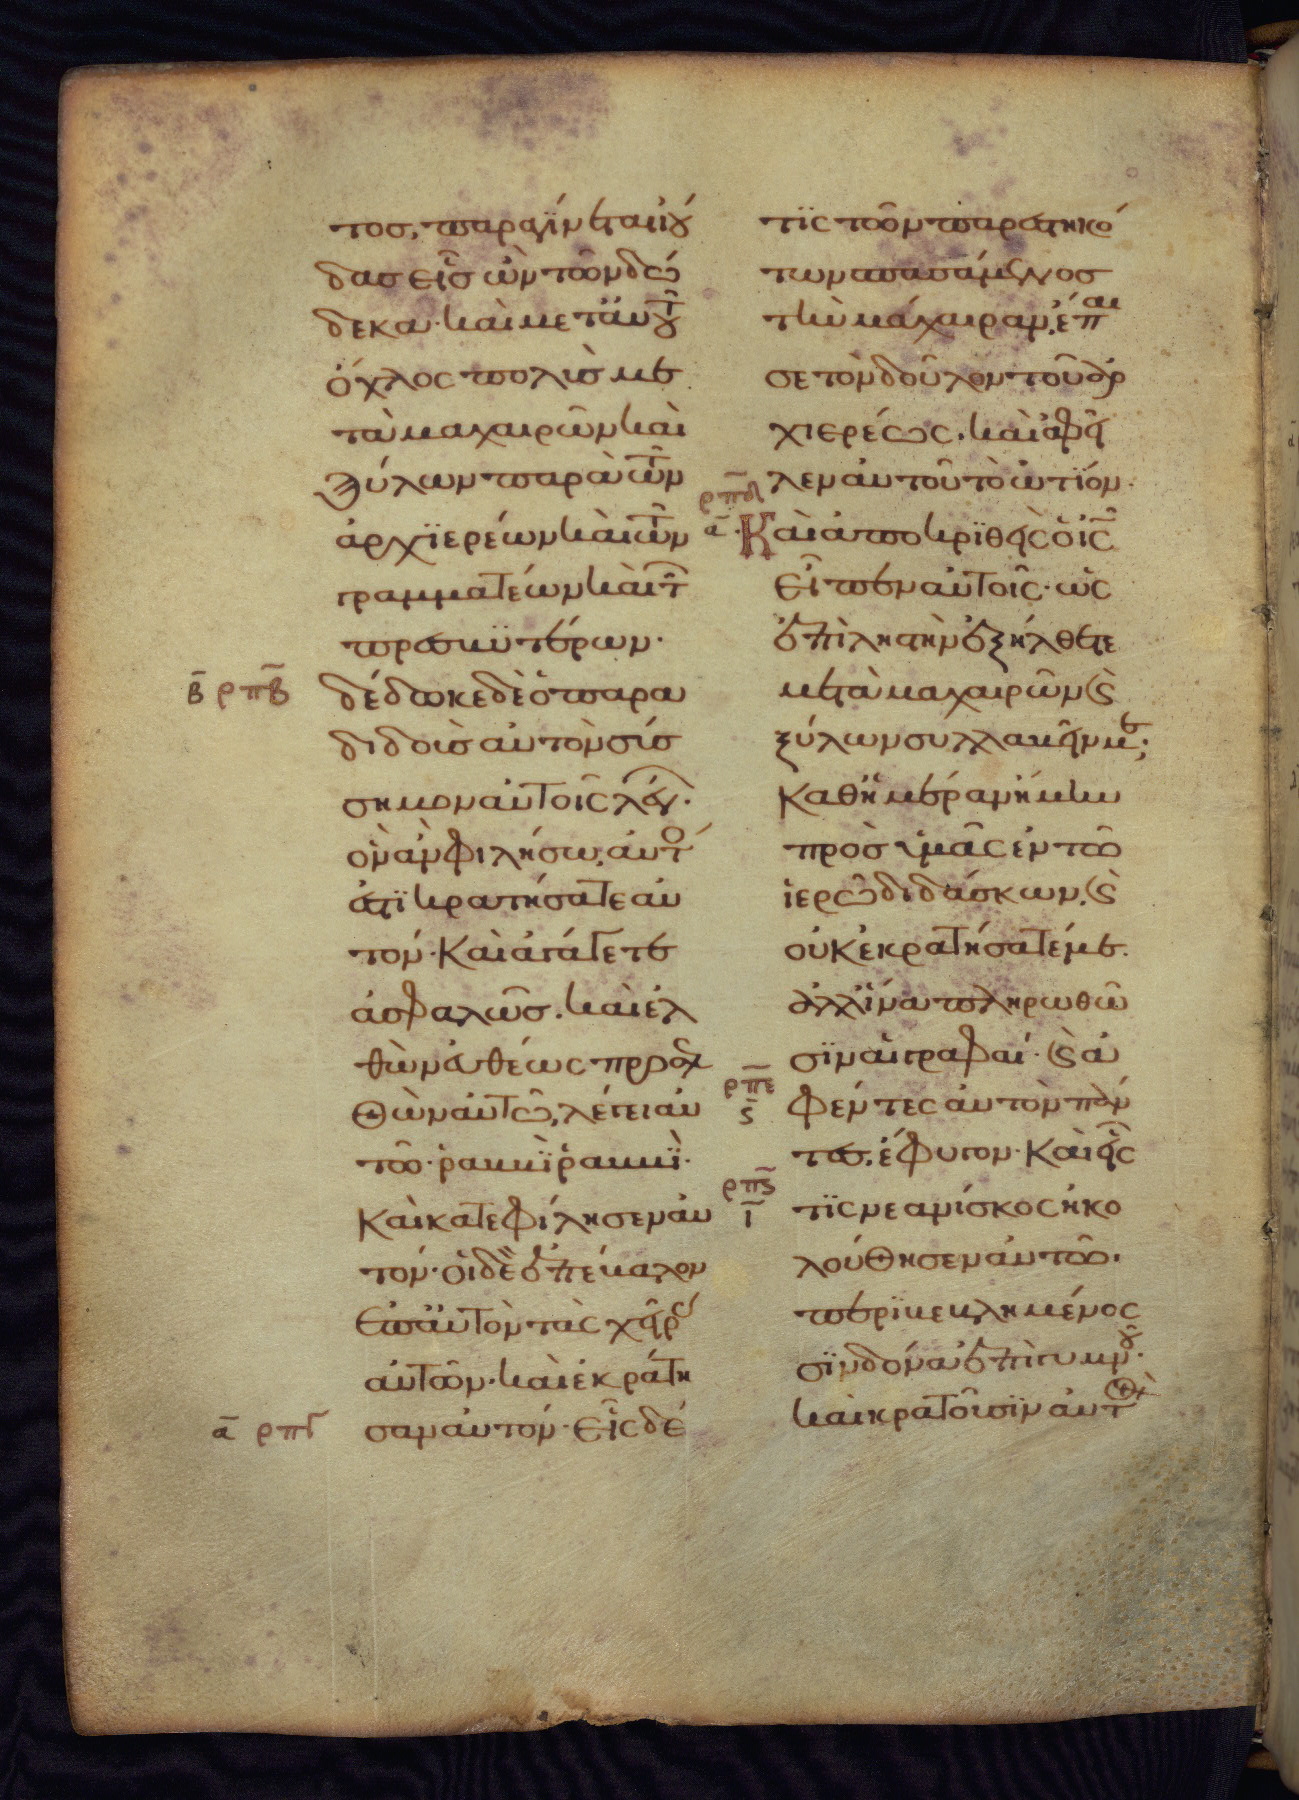 τος, παραγίνεται ἰού
δας εἷς ὢν τῶν δώ
δεκα· καὶ μετ αὐτοῦ
ὄχλος πολὺς με
τὰ μαχαιρῶν καὶ
ξύλων παρὰ τῶν
ἀρχϊερέων καὶ τῶν
γραμματέων καὶ τ
πρεσβϋτέρων·
β̄ ρπβ̄ δέδωκε δὲ ὁ παρα
διδοὺς αὐτὸν σύσ
σημον αὐτοῖς λέγ·
ὃν ἂν φιλήσω, αὐτ
ἐστϊ κρατήσατε αὐ
τόν· Καὶ ἀγάγετε
ἀσφαλῶς. καὶ ἐλ
θὼν εὐθέως προσελ
θὼν αὐτῶ, λέγει αὐ
τῶ· ῥαββὶ ῥαββΐ·
Καὶ κατεφίλησεν αὐ
τόν· οἱ δὲ ἐπέβαλον
ἐπ αὐτὸν τὰς χεῖρ
αὐτῶν· καὶ ἐκράτη
ᾱ ρπγ σαν αὐτόν· Εἷς δέ
τϊς τῶν παρεστηκό
των σπασάμενος
τὴν μάχαιραν, ἔπαι
σε τὸν δοῦλον τοῦ ἀρ
χιερέως· καὶ ἀφεῖ
λεν αὐτοῦ τὸ ὠτϊόν·
ρπδ ᾱ· Καὶ ἀποκρϊθεὶς ὁ ις̄
εἶπεν αὐτοῖς· ὡς
ἐπὶ ληστὴν ἐξήλθετε
μετὰ μαχαιρῶν ϛ̀
ξύλων συλλαβεῖν με;
Καθ ἡμέραν ἤμην
πρὸς ὑμᾶς ἐν τῶ
ἱερῶ διδάσκων, ϛ̀
οὐκ ἐκρατήσατέ με.
ἀλλ ἵνα πληρωθῶ
σϊν αἱ γραφαί· ϛ̀ ἀ
ρπε ϛ̄ φέντες αὐτὸν πάν
τες, ἔφυγον· Καὶ εἷς
ρπϛ ῑ τϊς νεανίσκος ἠκο
λούθησεν αὐτῶ.
περϊβεβλημένος
σϊνδόνα ἐπὶ γυμνοῦ·
καὶ κρατοῦσϊν αὐτ